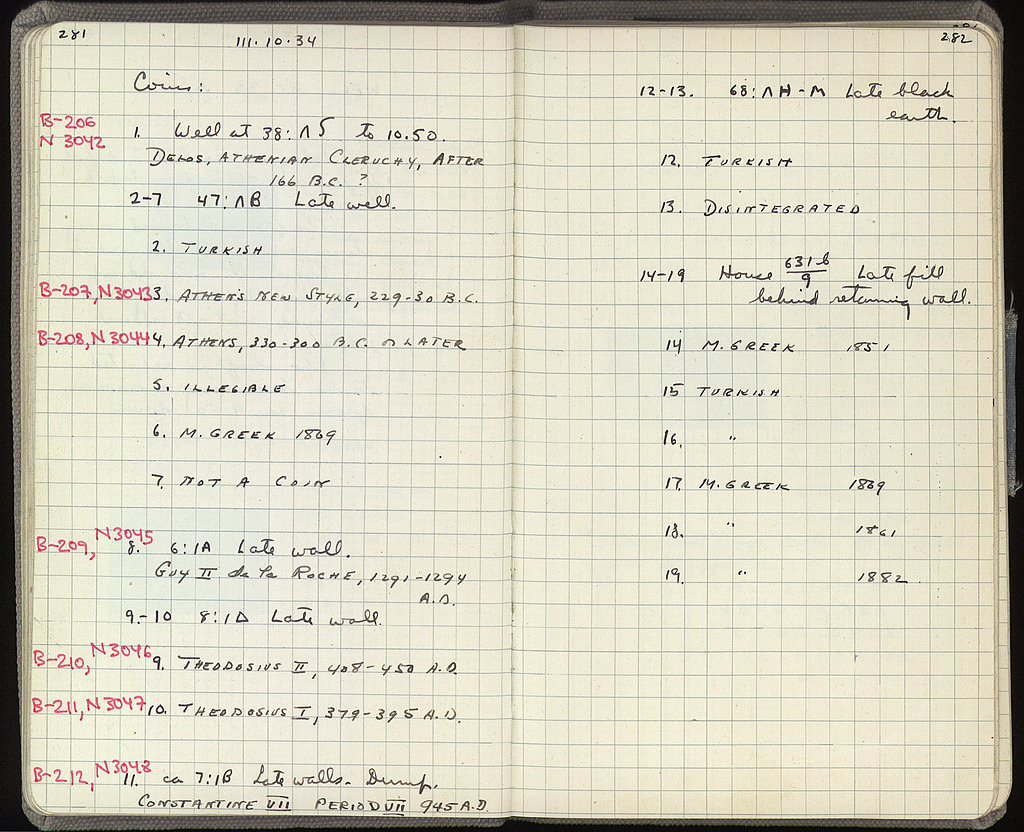 281
III·10·34
Coins:
B-206
N 3042
1. Well at 38:ΛΣ to 10.50.
DELOS, ATHENIAN CLERUCHY, AFTER
166 B.C. ?
2-7 47:ΛΒ Late well.
2. TURKISH
B-207, N3043 3. ATHENS NEW STYLE, 229-30 B.C.
B-208, N3044 4. ATHENS, 330-300 B.C. or LATER
5. ILLEGIBLE
6. M. GREEK 1869
7. NOT A COIN
B-209, N3045 8. 6:ΙΑ Late wall.
GUY II de la ROCHE, 1291-1294
A.D.
9.-10 8:ΙΔ Late wall.
B-210, N3046 9. THEODOSIUS II, 408-450 A.D.
B-211, N3047 10. THEODOSIUS I, 379-395 A.D.
B-212, N3048 11. ca 7:ΙΒ Late walls. Dump.
CONSTANTINE VII PERIOD VII 945 A.D.
282
12-13. 68:ΛΗ-Μ Late black
earth.
12. TURKISH
13. DISINTEGRATED
14-19 House 631b/9 Late fill
behind retaining wall.
14 M. GREEK 1851
15 TURKISH
16. "
17. M. GREEK 1869
18. " 1861
19. " 1882